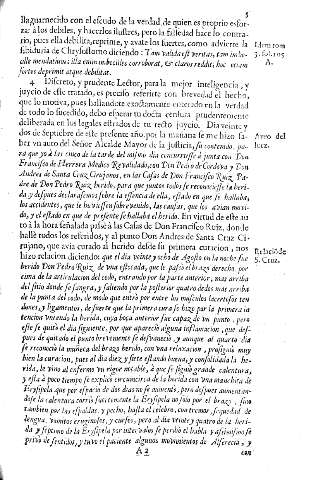 5
llaguarnecido con el escudo de la verdad, de quien es proprio esfor-
zar a los debiles, y hacerlos ilustres, pero la falsedad hace lo contra-
rio, pues ella debilita, oprime, y avate los fuertes, como advierte la
sabiduria de Chrysostomo diciendo: Tam valida est veritas, tam imbe-
cille mendatium: illa enim imbecilles corroborat, & claros reddit; hoc etiam
fortes deprimit atque debilitat.
4 Discreto, y prudente Lector, para la mejor inteligencia, y
juycio de este tratado, es preciso referirte con brevedad el hecho,
que lo motiva, pues hallandote exactamente enterado en la verdad
de todo lo sucedido, debo esperar tu docta censura prudentemente
deliberada en los legales estrados de tu recto juycio. Dia veinte y
dos de Septiembre de este presente año, por la mañana se me hizo sa-
ber vn auto del Señor Alcalde Mayor de la Justicia, su contenido, pa-
ra que yo à las cinco de la tarde del mismo dia concurriesse à junta con Don
Francisco de Herrera Medico Revalidado, con Don Pedro de Cordova y Don
Andres de Santa Cruz Cirujanos, en las Casas de Don Francisco Ruiz, Pa-
dre de Don Pedro Ruiz herido, para que juntos todos se reconociesse la heri-
da, y despues declarassemos sobre la essencia de ella, estado en que se hallaba,
los accidentes, que le huviessen sobrevenido, las causas, que los avian movi-
do, y el estado en que de presente se hallaba el herido. En virtud de este au-
to à la hora señalada passè à las Casas de Don Francisco Ruiz, donde
hallè todos los referidos, y al punto Don Andres de Santa Cruz Ci-
rujano, que avia curado al herido desde su primera curacion, nos
hizo relacion diciendo: que el dia veinte y ocho de Agosto en la noche fue
herido Don Pedro Ruiz, de una estocada, que le passò el brazo derecho por
cima de la articulacion del codo, entrando por la parte anterior, mas arriba
del sitio donde se sangra, y saliendo por la posterior quatro dedos mas arriba
de la punta del codo, de modo que entrò por entre los musculos lacertosos ten
dones, y ligamentos, de suerte que la primera cura se hizo por la primera in
tencion vniendo la herida, cuya boca anterior fue capaz de un punto, pero
este se quitò el dia siguiente, por que apareciò alguna inflamacion, que des-
pues de quitado el punto brevemente se desvaneciò, y aunque al quarto dia
se reconociò la muñeca del brazo herido, con vna relaxacion, prosiguiò muy
bien la curacion, pues al dia diez, y siete estando buena, y consolidada la he-
rida, le vino al enfermo vn rigor notable, à que se siguiò grande calentura,
y esta à poco tiempo se explicò circum circa de la herida con vna manchita de
Erysipela que por espacio de dos dias no se aumentò, pero despues aumentan-
dose la calentura corriò facilmente la Erysipela no solo por el brazo, sino
tambien por las espaldas, y pecho, hasta el celebro, con tremor, sequedad de
lengua, vomitos eruginosos, y cursos, pero al dia veinte y quatro de la heri-
da, y septimo de la Erysipela por intervalos se perdiò el habla y assimismo se
privò de sentidos, y tuvo el paciente algunos movimientos de Alferecia, y
A 2
con
Libro tom
3. fol. 105
A.
Avto del
Juez.
Relació de
S. Cruz.